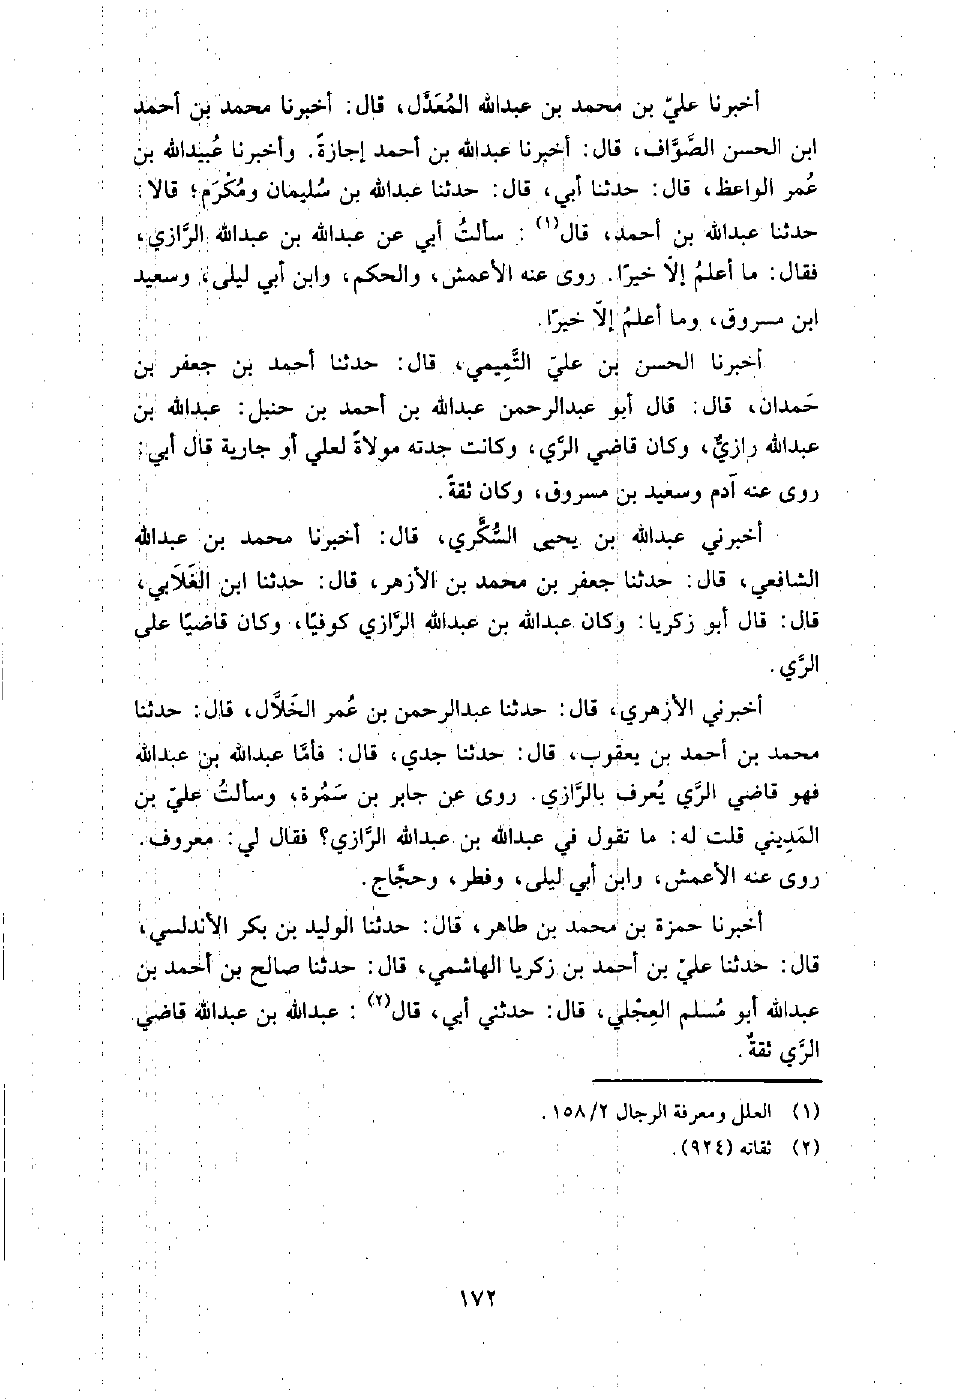 أخبرنا عليّ بن محمد بن عبدالله المُعَدَّل، قال: أخبرنا محمد بن أحمد
ابن الحسن الصَّوَّاف، قال: أخبرنا عبدالله بن أحمد إجازةً. وأخبرنا عُبيدالله بن
عُمر الواعظ، قال: حدثنا أبي، قال: حدثنا عبدالله بن سُليمان ومُكْرَم؛ قالا:
حدثنا عبدالله بن أحمد، قال(١): سألتُ أبي عن عبدالله بن عبدالله الرَّازي،
فقال: ما أعلمُ إلاّ خيرًا. روى عنه الأعمش، والحكم، وابن أبي ليلى، وسعيد
ابن مسروق، وما أعلمُ إلاّ خيرًا.
أخبرنا الحسن بن عليّ التَّمِيمي، قال: حدثنا أحمد بن جعفر بن
حَمدان، قال: قال أبو عبدالرحمن عبدالله بن أحمد بن حنبل: عبدالله بن
عبدالله رازيٌّ، وكان قاضي الرَّي، وكانت جدته مولاةً لعلي أو جارية قال أبي:
روى عنه آدم وسعيد بن مسروق، وكان ثقةً.
أخبرني عبدالله بن يحيى السُّكَّري، قال: أخبرنا محمد بن عبدالله
الشافعي، قال: حدثنا جعفر بن محمد بن الأزهر، قال: حدثنا ابن الغَلَابي،
قال: قال أبو زكريا: وكان عبدالله بن عبدالله الرَّازي كوفيًا، وكان قاضيًا على
الرَّي.
أخبرني الأزهري، قال: حدثنا عبدالرحمن بن عُمر الخَلَّال، قال: حدثنا
محمد بن أحمد بن يعقوب، قال: حدثنا جدي، قال: فأمَّا عبدالله بن عبدالله
فهو قاضي الرَّي يُعرف بالرَّازي. روى عن جابر بن سَمُرة، وسألتُ عليّ بن
المَدِيني قلت له: ما تقول في عبدالله بن عبدالله الرَّازي؟ فقال لي: معروف.
روى عنه الأعمش، وابن أبي ليلى، وفطر، وحجَّاج.
أخبرنا حمزة بن محمد بن طاهر، قال: حدثنا الوليد بن بكر الأندلسي،
قال: حدثنا عليّ بن أحمد بن زكريا الهاشمي، قال: حدثنا صالح بن أحمد بن
عبدالله أبو مُسلم العِجْلي، قال: حدثني أبي، قال(٢): عبدالله بن عبدالله قاضي
الرَّي ثقةٌ.
(١) العلل ومعرفة الرجال ٢/ ١٥٨.
(٢) ثقاته (٩٢٤).
١٧٢